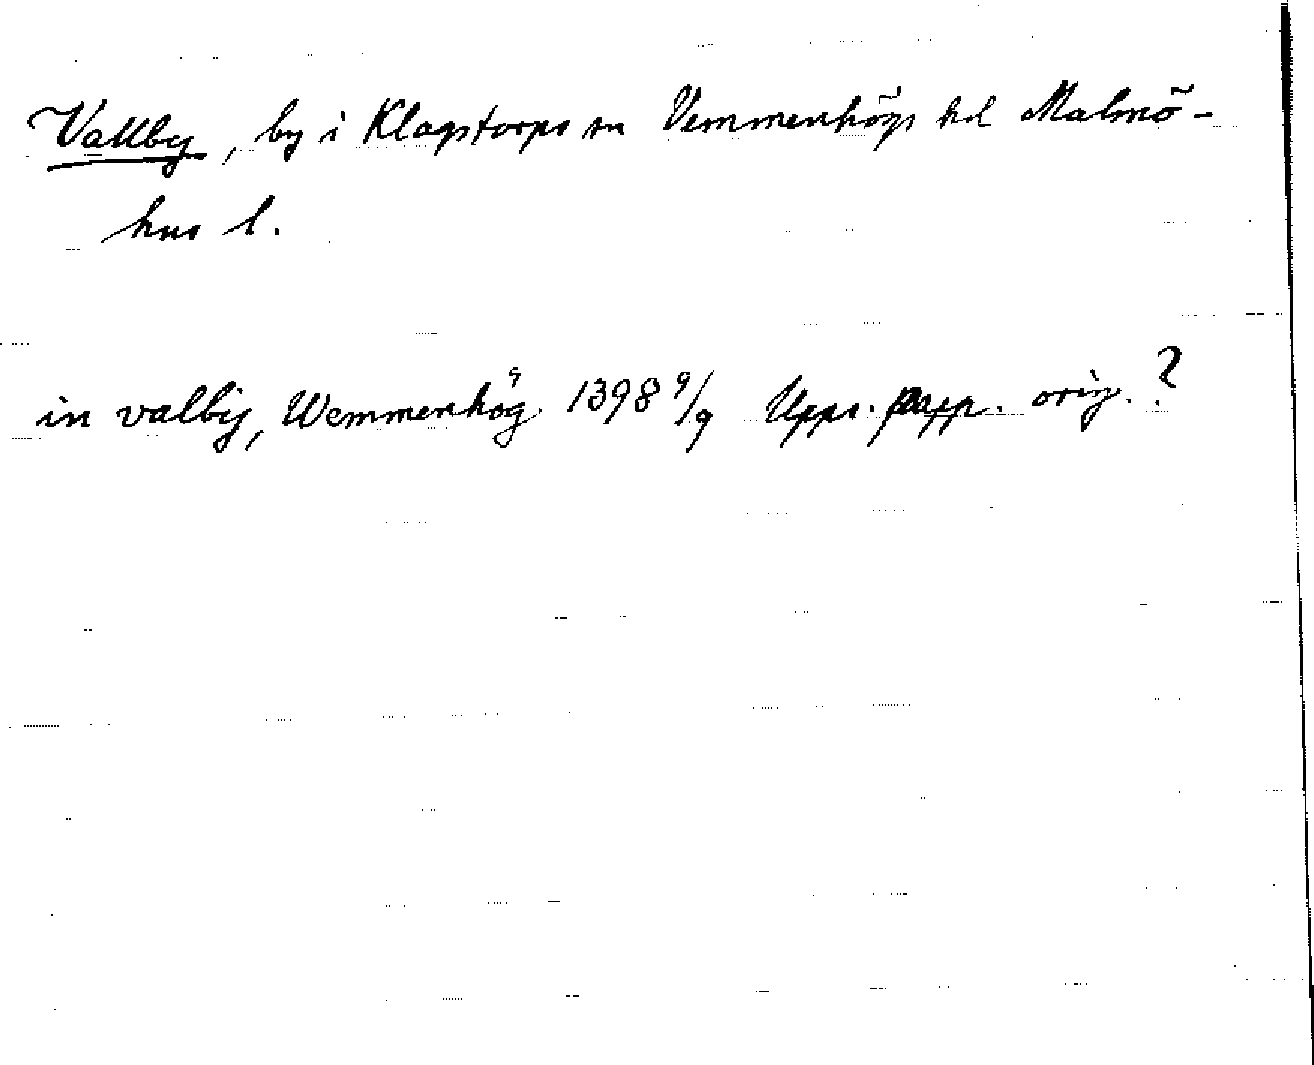 Vallby, by i Klagstorps sn Vemmenhögs hd Malmö-
hus l.
in valby, Wemmenhög 1398 9/9 Upps. papp. orig.?